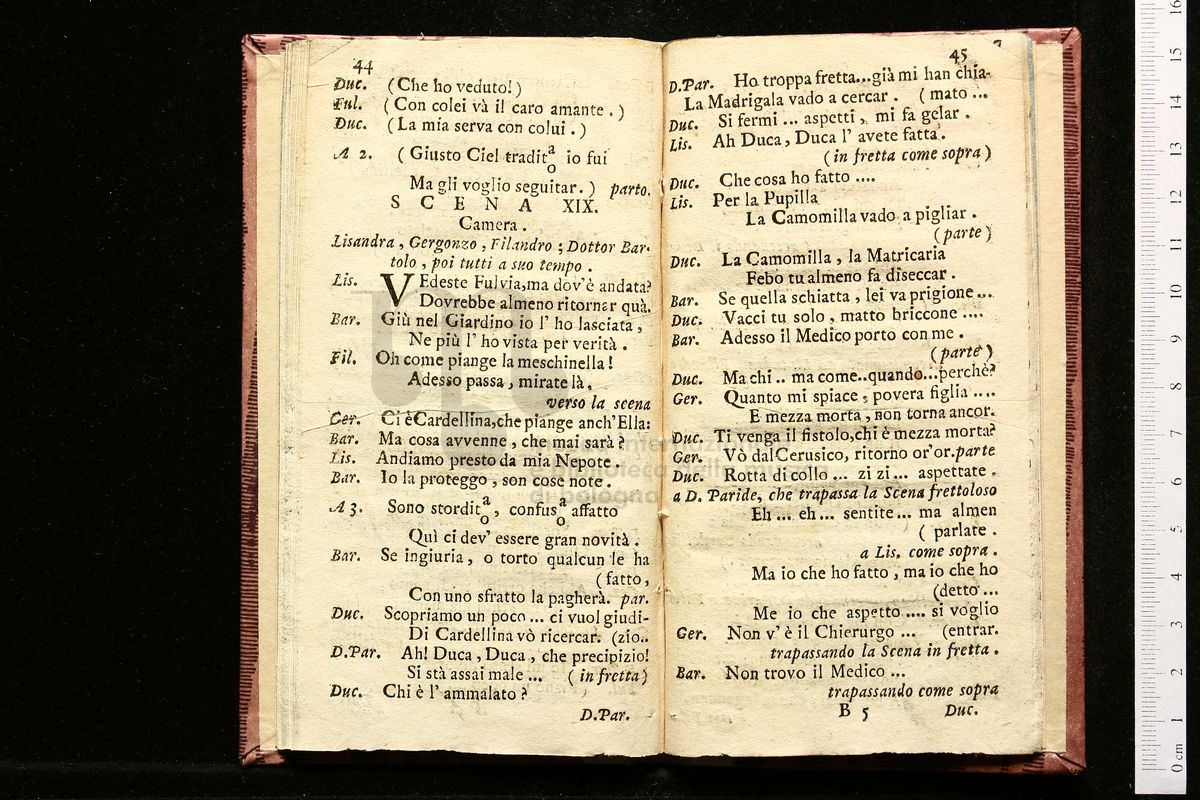 44
Duc. (Che ho veduto!)
Ful. (Con colei và il caro amante.)
Duc. (La mia serva con colui.)
A 2. (Giusto Ciel tradit a/o io fui
Ma gli voglio seguitar.) parto.
SCENA XIX.
Camera.
Lisandra, Gergonzo, Filandro; Dottor Bar-
tolo, poi tutti a suo tempo.
Lis. VEdeste Fulvia, ma dov'è andata?
Dovrebbe almeno ritornar quà.
Bar. Giù nel Giardino io l' ho lasciata,
Ne più l' ho vista per verità.
Fil. Oh come piange la meschinella!
Adesso passa, mirate là,
verso la scena
Ger. Ci è Cardellina, che piange anch' Ella:
Bar. Ma cosa avvenne, che mai sarà?
Lis. Andiamo presto da mia Nepote,
Bar. Io la proteggo, son cose note.
A 3. Sono stordit a/o, confus a/o affatto
Quì ci dev' essere gran novità.
Bar. Se ingiuria, o torto qualcun le ha
(fatto,
Con uno sfratto la pagherà. par.
Duc. Scopriamo un poco ... ci vuol giudi-
Di Cardellina vò ricercar. (zio..
D.Par. Ah! Duca, Duca, che precipizio!
Si stà assai male ... (in fretta)
Duc. Chi è l' ammalato?
D.Par.
45
D.Par. Ho troppa fretta...già mi han chia-
La Madrigala vado a cercar. (mato ...
Duc. Si fermi ... aspetti, mi fa gelar.
Lis. Ah Duca, Duca l' avete fatta.
(in fretta come sopra)
Duc. Che cosa ho fatto ....
Lis. Per la Pupilla
La Camomilla vado a pigliar.
(parte)
Duc. La Camomilla, la Matricaria
Febo tu almeno fa diseccar.
Bar. Se quella schiatta, lei va prigione ...
Duc. Vacci tu solo, matto briccone ....
Bar. Adesso il Medico porto con me.
(parte)
Duc. Ma chi .. ma come..quando...perchè?
Ger. Quanto mi spiace, povera figlia ....
E mezza morta, non torna ancor.
Duc. Ti venga il fistolo, chi è mezza morta?
Ger. Vò dal Cerusico, ritorno or'or. parte
Duc. Rotta di collo ... zi zi ... aspettate.
a D. Paride, che trapassa la Scena frettoloso
Eh ... eh ... sentite ... ma almen
( parlate.
a Lis. come sopra.
Ma io che ho fatto, ma io che ho
(detto ...
Me io che aspetto .... si voglio
Ger. Non v' è il Chierurgo ... (entrar.
trapassando la Scena in fretta.
Bar. Non trovo il Medico ...
trapassando come sopra
B 5 Duc.